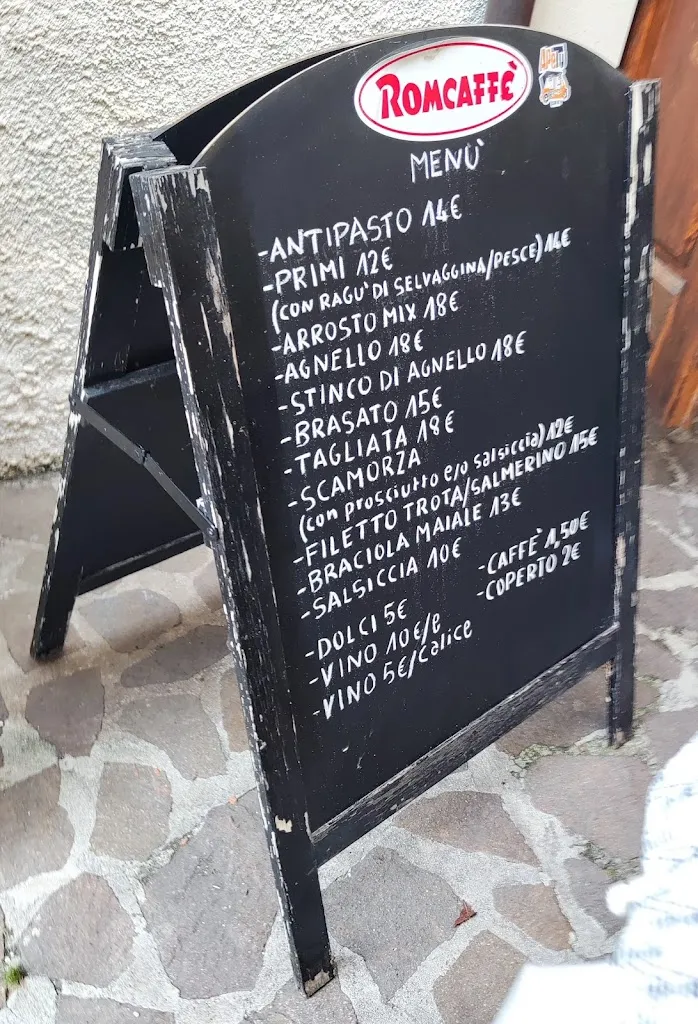 ROMCAFFÈ
MENÙ
-ANTIPASTO 14€
-PRIMI 12€
(CON RAGU' DI SELVAGGINA/PESCE) 14€
-ARROSTO MIX 18€
-AGNELLO 18€
-STINCO DI AGNELLO 18€
-BRASATO 15€
-TAGLIATA 18€
-SCAMORZA
(con prosciutto e/o salsiccia) 12€
-FILETTO TROTA/SALMERINO 15€
-BRACIOLA MAIALE 13€
-SALSICCIA 10€
-CAFFE' 1,50€
-COPERTO 2€
-DOLCI 5€
-VINO 10€/e
-VINO 5€/calice